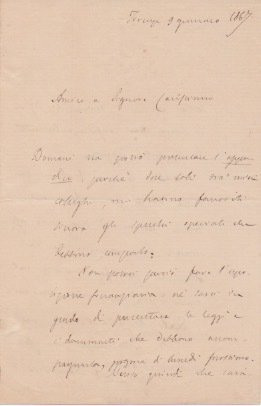 Firenze 9 gennaio 1867
Amico e Signore Carissimo
Domani non posso presentare l'appen
dice, perchè due soli tra' miei
colleghi, mi hanno favorito
finora gli specchi speciali che
debbono comporla.
Non potrei farvi fare l'espo
sizione finanziaria, nè sarei in
grado di presentare le leggi e
i documenti che debbono accom
pagnarla, prima di lunedì prossimo.
quindi che